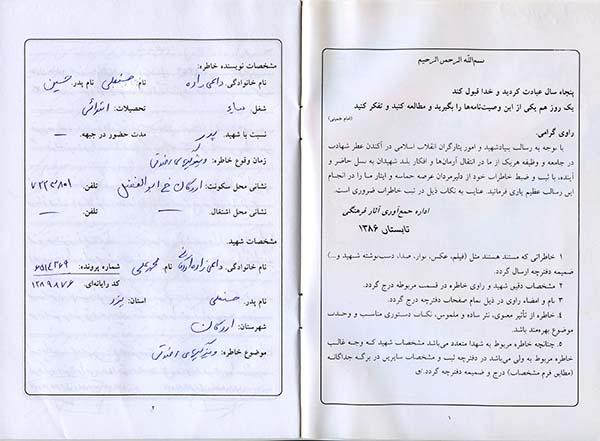 بسم‌الله الرحمن الرحیم
پنجاه سال عبادت کردید و خدا قبول کند
یک روز هم یکی از این وصیت‌نامه‌ها را بگیرید و مطالعه کنید و تفکر کنید
(امام خمینی)
راوی گرامی،
با توجه به رسالت بنیادشهید و امور ایثارگران انقلاب اسلامی در آکندن عطر شهادت
در جامعه و وظیفه هریک از ما در انتقال آرمان‌ها و افکار بلند شهیدان به نسل حاضر و
آینده، با ثبت و ضبط خاطرات خود از دلیرمردان عرصه حماسه و ایثار ما را در انجام
این رسالت عظیم یاری فرمائید. عنایت به نکات ذیل در ثبت خاطرات ضروری است.
اداره جمع‌آوری آثار فرهنگی
تابستان ۱۳۸۶
۱ خاطراتی که مستند هستند مثل (فیلم، عکس، نوار، صدا، دست‌نوشته شهید و...)
ضمیمه دفترچه ارسال گردد.
۲. مشخصات دقیق شهید و راوی خاطره در قسمت مربوطه درج گردد.
۳. نام و امضاء راوی در ذیل تمام صفحات دفترچه درج گردد.
۴. خاطره از تأثیر معنوی، نثر ساده و ملموس، نکات دستوری مناسب و وحدت
موضوع بهره‌مند باشد.
۵. چنانچه خاطره مربوط به شهدا متعدد می‌باشد مشخصات شهید که وجه غالب
خاطره مربوط به ولی می‌باشد در دفترچه ثبت و مشخصات سایرین در برگه جداگانه
(مطابق فرم مشخصات) درج و ضمیمه دفترچه گردد.
۱
مشخصات نویسنده خاطره:
نام خانوادگی: دائمی زاده نام: حسنعلی نام پدر: حسین
شغل: تحصیلات: ابتدائی
نسبت با شهید: پدر مدت حضور در جبهه: —
زمان وقوع خاطره: ویژگیهای اخلاقی
نشانی محل سکونت: اردکان خ ابوالفضل تلفن: ۷۲۲۲۸۰۱
نشانی محل اشتغال: — تلفن: —
مشخصات شهید:
نام خانوادگی: دائمی زاده اردکانی نام: محمدعلی شماره پرونده: ۶۵۱۴۲۶۹
کد رایانه‌ای: ۱۲۸۹۸۷۶
نام پدر: حسنعلی استان: یزد
شهرستان: اردکان
موضوع خاطره: ویژگیهای اخلاقی
۲